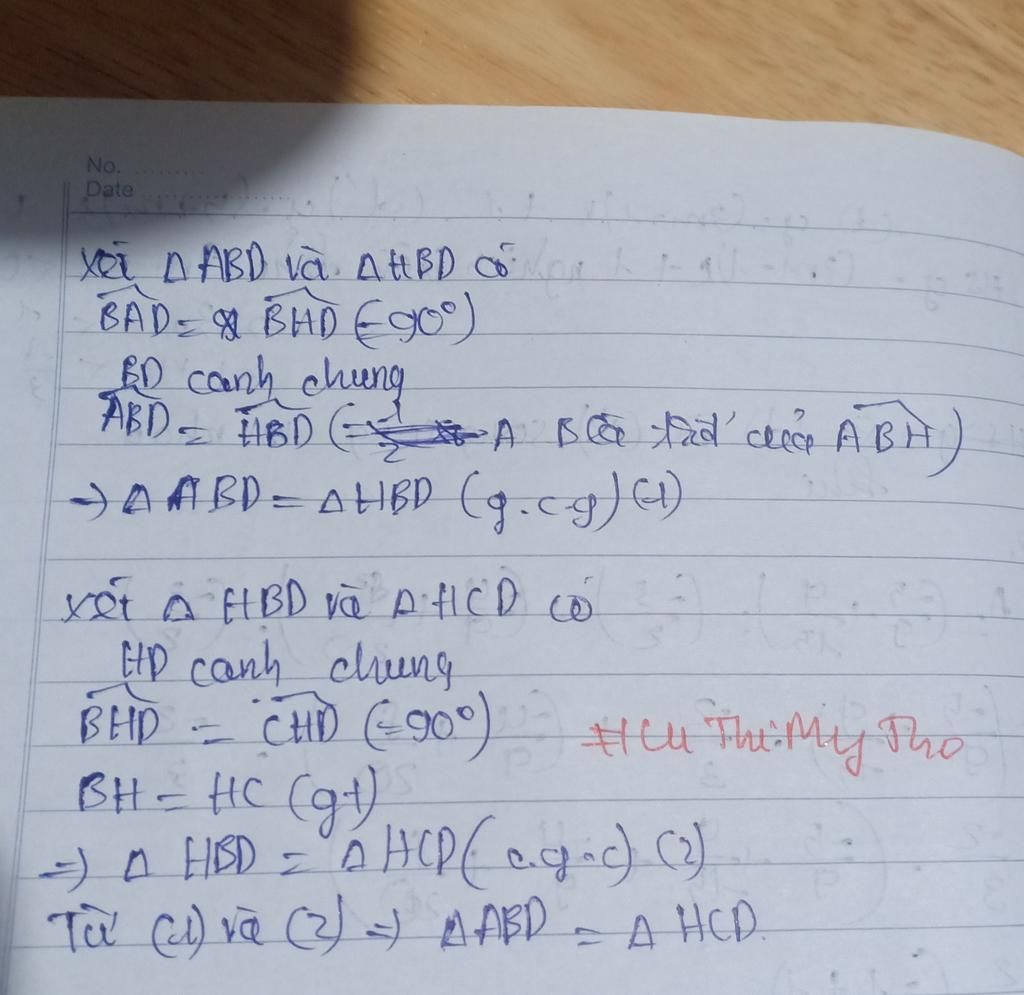 No.
Date
xét Δ ABD và ΔHBD có
BAD = BHD (=90°)
BD canh chung
ABD = HBD (= A của ABH)
=> Δ ABD = ΔHBD (g.c-g) (1)
xét Δ HBD và Δ HCD có
HD canh chung
BHD = CHD (=90°)
#HCu Thi My Tho
BH = HC (gt)
=> Δ HBD = Δ HCD (c.g.c) (2)
Từ (1) và (2) => ΔABD = Δ HCD.